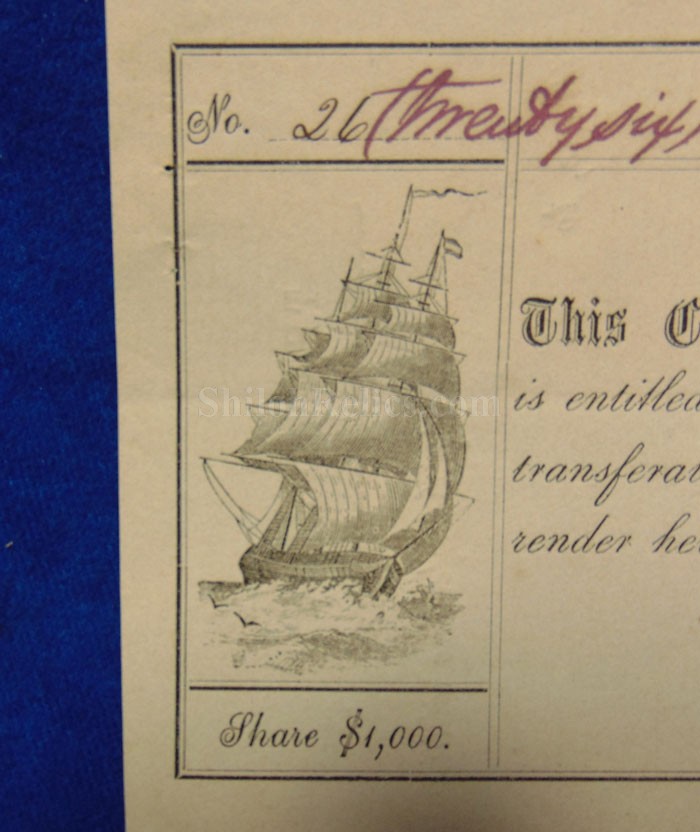 No. 26 twenty six
This C
is entitled
transferab
render he
ShilohRelics.com
Share $1,000.